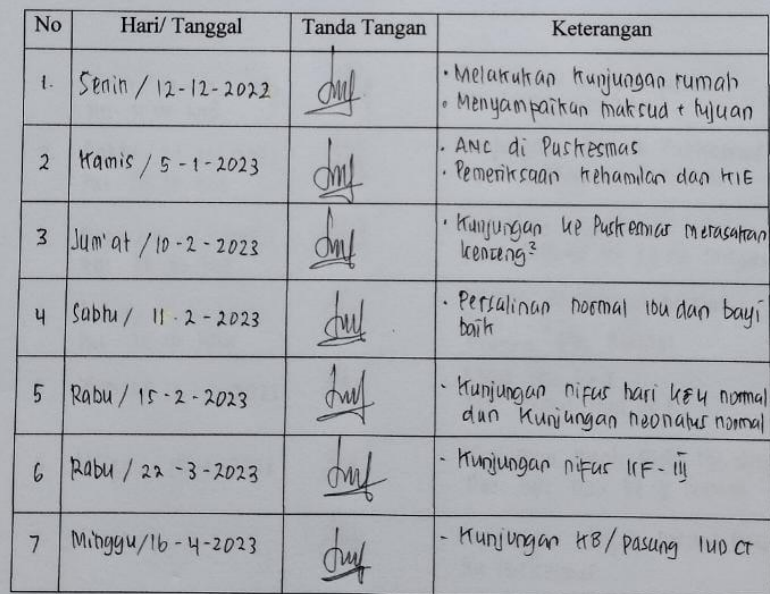 No Hari/ Tanggal Tanda Tangan Keterangan
1. Senin / 12-12-2022 • Melakukan kunjungan rumah
• Menyampaikan maksud + tujuan
2 Kamis / 5-1-2023 • ANC di Puskesmas
• Pemeriksaan kehamilan dan KIE
3 Jum'at / 10-2-2023 • Kunjungan ke Puskesmas merasakan
kenceng²
4 Sabtu / 11-2-2023 • Persalinan normal ibu dan bayi
baik
5 Rabu / 15-2-2023 - Kunjungan nifas hari ke4 normal
dan Kunjungan neonatus normal
6 Rabu / 22-3-2023 - Kunjungan nifas KF-III
7 Minggu/16-4-2023 - Kunjungan KB/pasang IUD CT